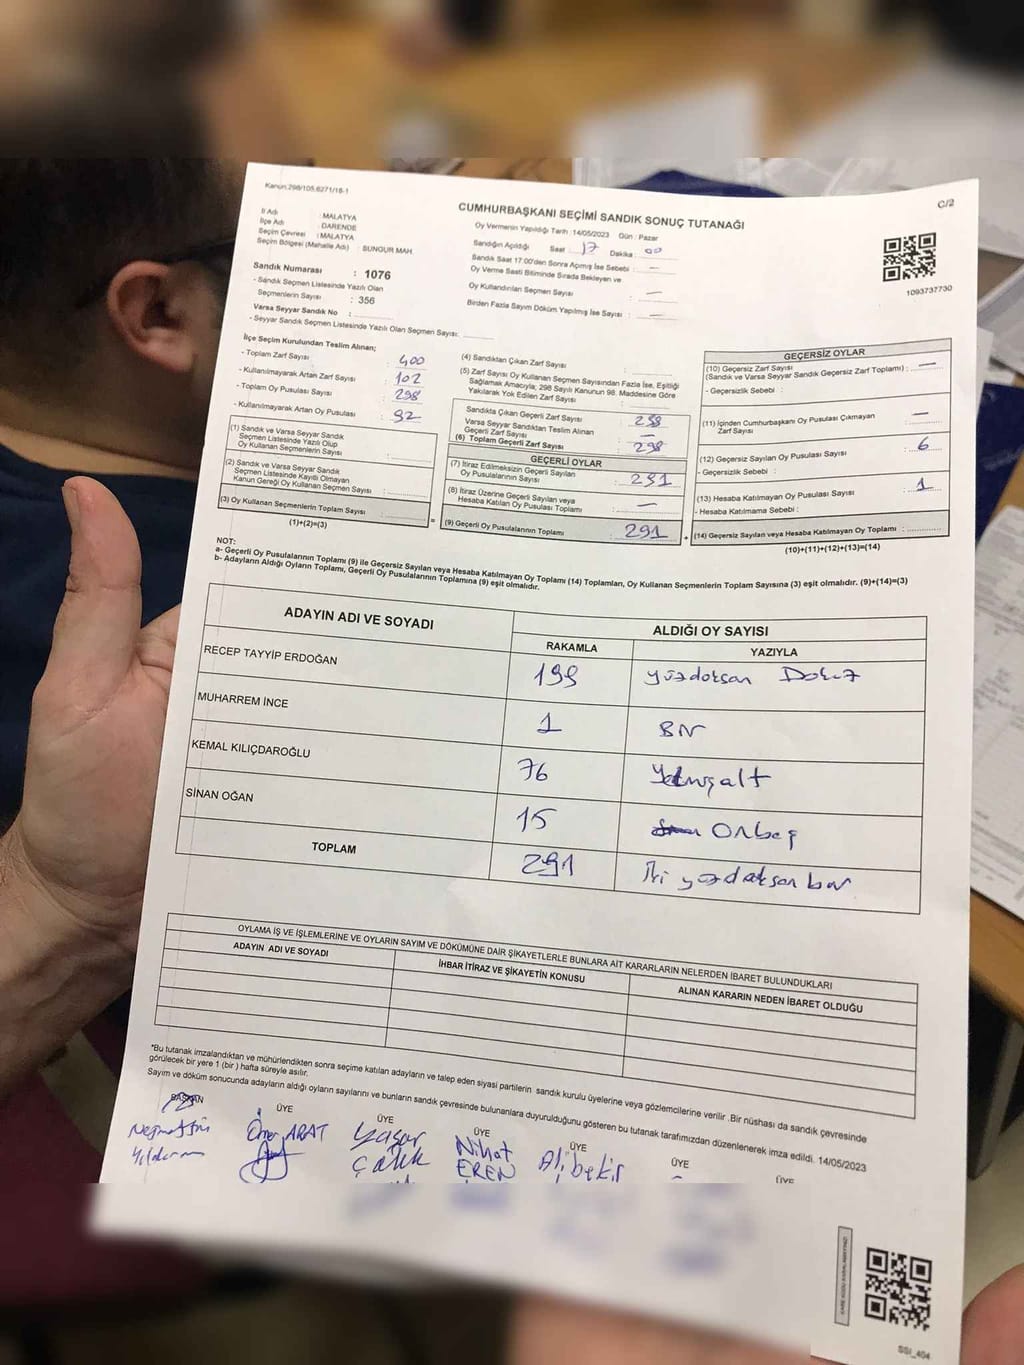 Kanun.298/105,6271/18-1
C/2
CUMHURBAŞKANI SEÇİMİ SANDIK SONUÇ TUTANAĞI
İl Adı : MALATYA
İlçe Adı : DARENDE
Seçim Çevresi : MALATYA
Seçim Bölgesi (Mahalle Adı) : SUNGUR MAH
Oy Vermenin Yapıldığı Tarih : 14/05/2023 Gün : Pazar
Sandığın Açıldığı Saat : 17 Dakika : 00
Sandık Saat 17:00'den Sonra Açımış İse Sebebi : —
Oy Verme Saati Bitiminde Sırada Bekleyen ve
Oy Kullandırılan Seçmen Sayısı : —
Birden Fazla Sayım Döküm Yapılmış İse Sayısı : —
1093737730
Sandık Numarası : 1076
- Sandık Seçmen Listesinde Yazılı Olan
Seçmenlerin Sayısı : 356
Varsa Seyyar Sandık No :
- Seyyar Sandık Seçmen Listesinde Yazılı Olan Seçmen Sayısı:
İlçe Seçim Kurulundan Teslim Alınan;
- Toplam Zarf Sayısı : 400
- Kullanılmayarak Artan Zarf Sayısı : 102
- Toplam Oy Pusulası Sayısı :
- Kullanılmayarak Artan Oy Pusulası :
(1) Sandık ve Varsa Seyyar Sandık
Seçmen Listesinde Yazılı Olup
Oy Kullanan Seçmenlerin Sayısı :
(2) Sandık ve Varsa Seyyar Sandık
Seçmen Listesinde Kayıtlı Olmayan
Kanun Gereği Oy Kullanan Seçmen Sayısı :
(3) Oy Kullanan Seçmenlerin Toplam Sayısı :
(1)+(2)=(3)
(4) Sandıktan Çıkan Zarf Sayısı :
(5) Zarf Sayısı Oy Kullanan Seçmen Sayısından Fazla İse, Eşitliği
Sağlamak Amacıyla; 298 Sayılı Kanunun 98. Maddesine Göre
Yakılarak Yok Edilen Zarf Sayısı :
Sandıkta Çıkan Geçerli Zarf Sayısı : 298
Varsa Seyyar Sandıktan Teslim Alınan
Geçerli Zarf Sayısı : —
(6) Toplam Geçerli Zarf Sayısı : 298
GEÇERLİ OYLAR
(7) İtiraz Edilmeksizin Geçerli Sayılan
Oy Pusulalarının Sayısı : 291
(8) İtiraz Üzerine Geçerli Sayılan veya
Hesaba Katılan Oy Pusulası Toplamı : —
(9) Geçerli Oy Pusulalarının Toplamı : 291
GEÇERSİZ OYLAR
(10) Geçersiz Zarf Sayısı
(Sandık ve Varsa Seyyar Sandık Geçersiz Zarf Toplamı) : —
- Geçersizlik Sebebi :
(11) İçinden Cumhurbaşkanı Oy Pusulası Çıkmayan
Zarf Sayısı —
(12) Geçersiz Sayılan Oy Pusulası Sayısı : 6
- Geçersizlik Sebebi :
(13) Hesaba Katılmayan Oy Pusulası Sayısı : 1
- Hesaba Katılmama Sebebi :
(14) Geçersiz Sayılan veya Hesaba Katılmayan Oy Toplamı :
(10)+(11)+(12)+(13)=(14)
NOT:
a- Geçerli Oy Pusulalarının Toplamı (9) ile Geçersiz Sayılan veya Hesaba Katılmayan Oy Toplamı (14) Toplamları, Oy Kullanan Seçmenlerin Toplam Sayısına (3) eşit olmalıdır. (9)+(14)=(3)
b- Adayların Aldığı Oyların Toplamı, Geçerli Oy Pusulalarının Toplamına (9) eşit olmalıdır.
ADAYIN ADI VE SOYADI
ALDIĞI OY SAYISI
RAKAMLA YAZIYLA
RECEP TAYYİP ERDOĞAN 199 yüzdoksan Dokuz
MUHARREM İNCE 1 Bir
KEMAL KILIÇDAROĞLU 76 Yetmişaltı
SİNAN OĞAN 15 Onbeş
TOPLAM 291 İki yüzdoksan bir
OYLAMA İŞ VE İŞLEMLERİNE VE OYLARIN SAYIM VE DÖKÜMÜNE DAİR ŞİKAYETLERLE BUNLARA AİT KARARLARIN NELERDEN İBARET BULUNDUKLARI
ADAYIN ADI VE SOYADI
İHBAR İTİRAZ VE ŞİKAYETİN KONUSU
ALINAN KARARIN NEDEN İBARET OLDUĞU
"Bu tutanak imzalandıktan ve mühürlendikten sonra seçime katılan adayların ve talep eden siyasi partilerin sandık kurulu üyelerine veya gözlemcilerine verilir .Bir nüshası da sandık çevresinde
görülecek bir yere 1 (bir ) hafta süreyle asılır.
Sayım ve döküm sonucunda adayların aldığı oyların sayılarını ve bunların sandık çevresinde bulunanlara duyurulduğunu gösteren bu tutanak tarafımızdan düzenlenerek imza edildi. 14/05/2023
BAŞKAN ÜYE ÜYE ÜYE ÜYE ÜYE ÜYE
Necmettin Yıldırım
Ömer ARAT
Yaşar Çalık
Nihat EREN
Ali bekir
SSI_404